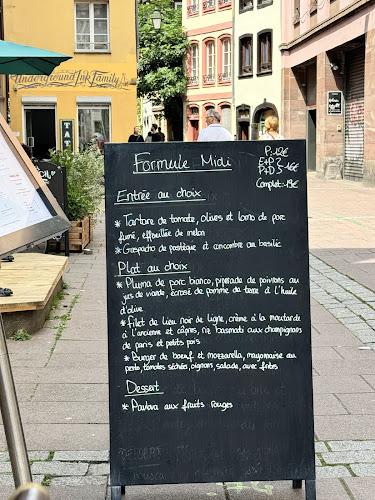 Underground Ink Family
TAT
Formule Midi
P:12€
E+P }
P+D } 16€
Complet: 19€
Entrée au choix
* Tartare de tomate, olives et lomo de porc
fumé, effeuillée de melon
* Gaspacho de pastèque et concombre au basilic
Plat au choix
* Pluma de porc blanc, piperade de poivrons au
jus de viande, écrasé de pomme de terre à l'huile
d'olive
* Filet de lieu noir de ligne, crème à la moutarde
à l'ancienne et câpres, riz basmati aux champignons
de paris et petits pois
* Burger de boeuf et mozzarella, mayonnaise au
pesto, tomates séchées, oignons, salade, avec frites
Dessert
* Pavlova aux fruits rouges